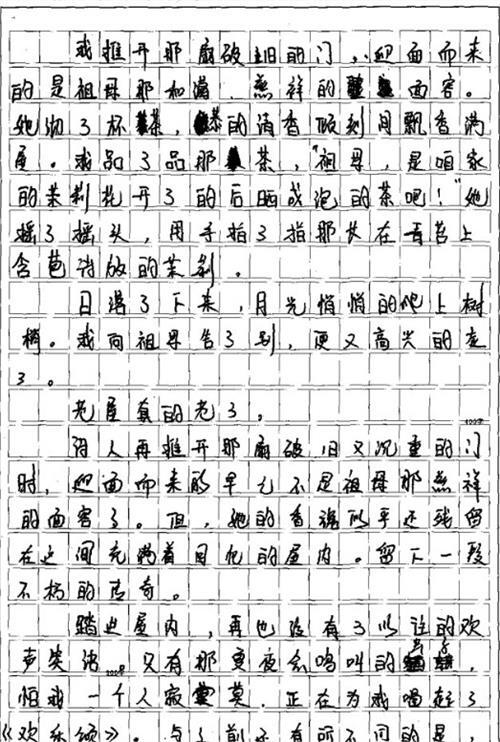 我推开那扇破旧的门，迎面而来
的是祖母那和蔼、慈祥的面容。
她沏了杯茶，茶的清香顷刻间飘香满
屋。我品了品那茶，“祖母，是咱家
的茉莉花开了的后晒成泡的茶吧！”她
摇了摇头，用手指了指那长在青苔上
含苞待放的茉莉。
日落了下来，月光悄悄的爬上树
梢。我向祖母告了别，便又高兴的走
了。
老屋真的老了。
待人再推开那扇破旧又沉重的门
时，迎面而来的早已不是祖母那慈祥
的面容了。但，她的香魂似乎还残留
在这间充满着回忆的屋内。留下一段
不朽的传奇。
踏进屋内，再也没有了以往的欢
声笑语 又有那夏夜会鸣叫的
怕我一个人寂寞，正在为我唱起了
《欢乐颂》。与之前还有所不同的是，